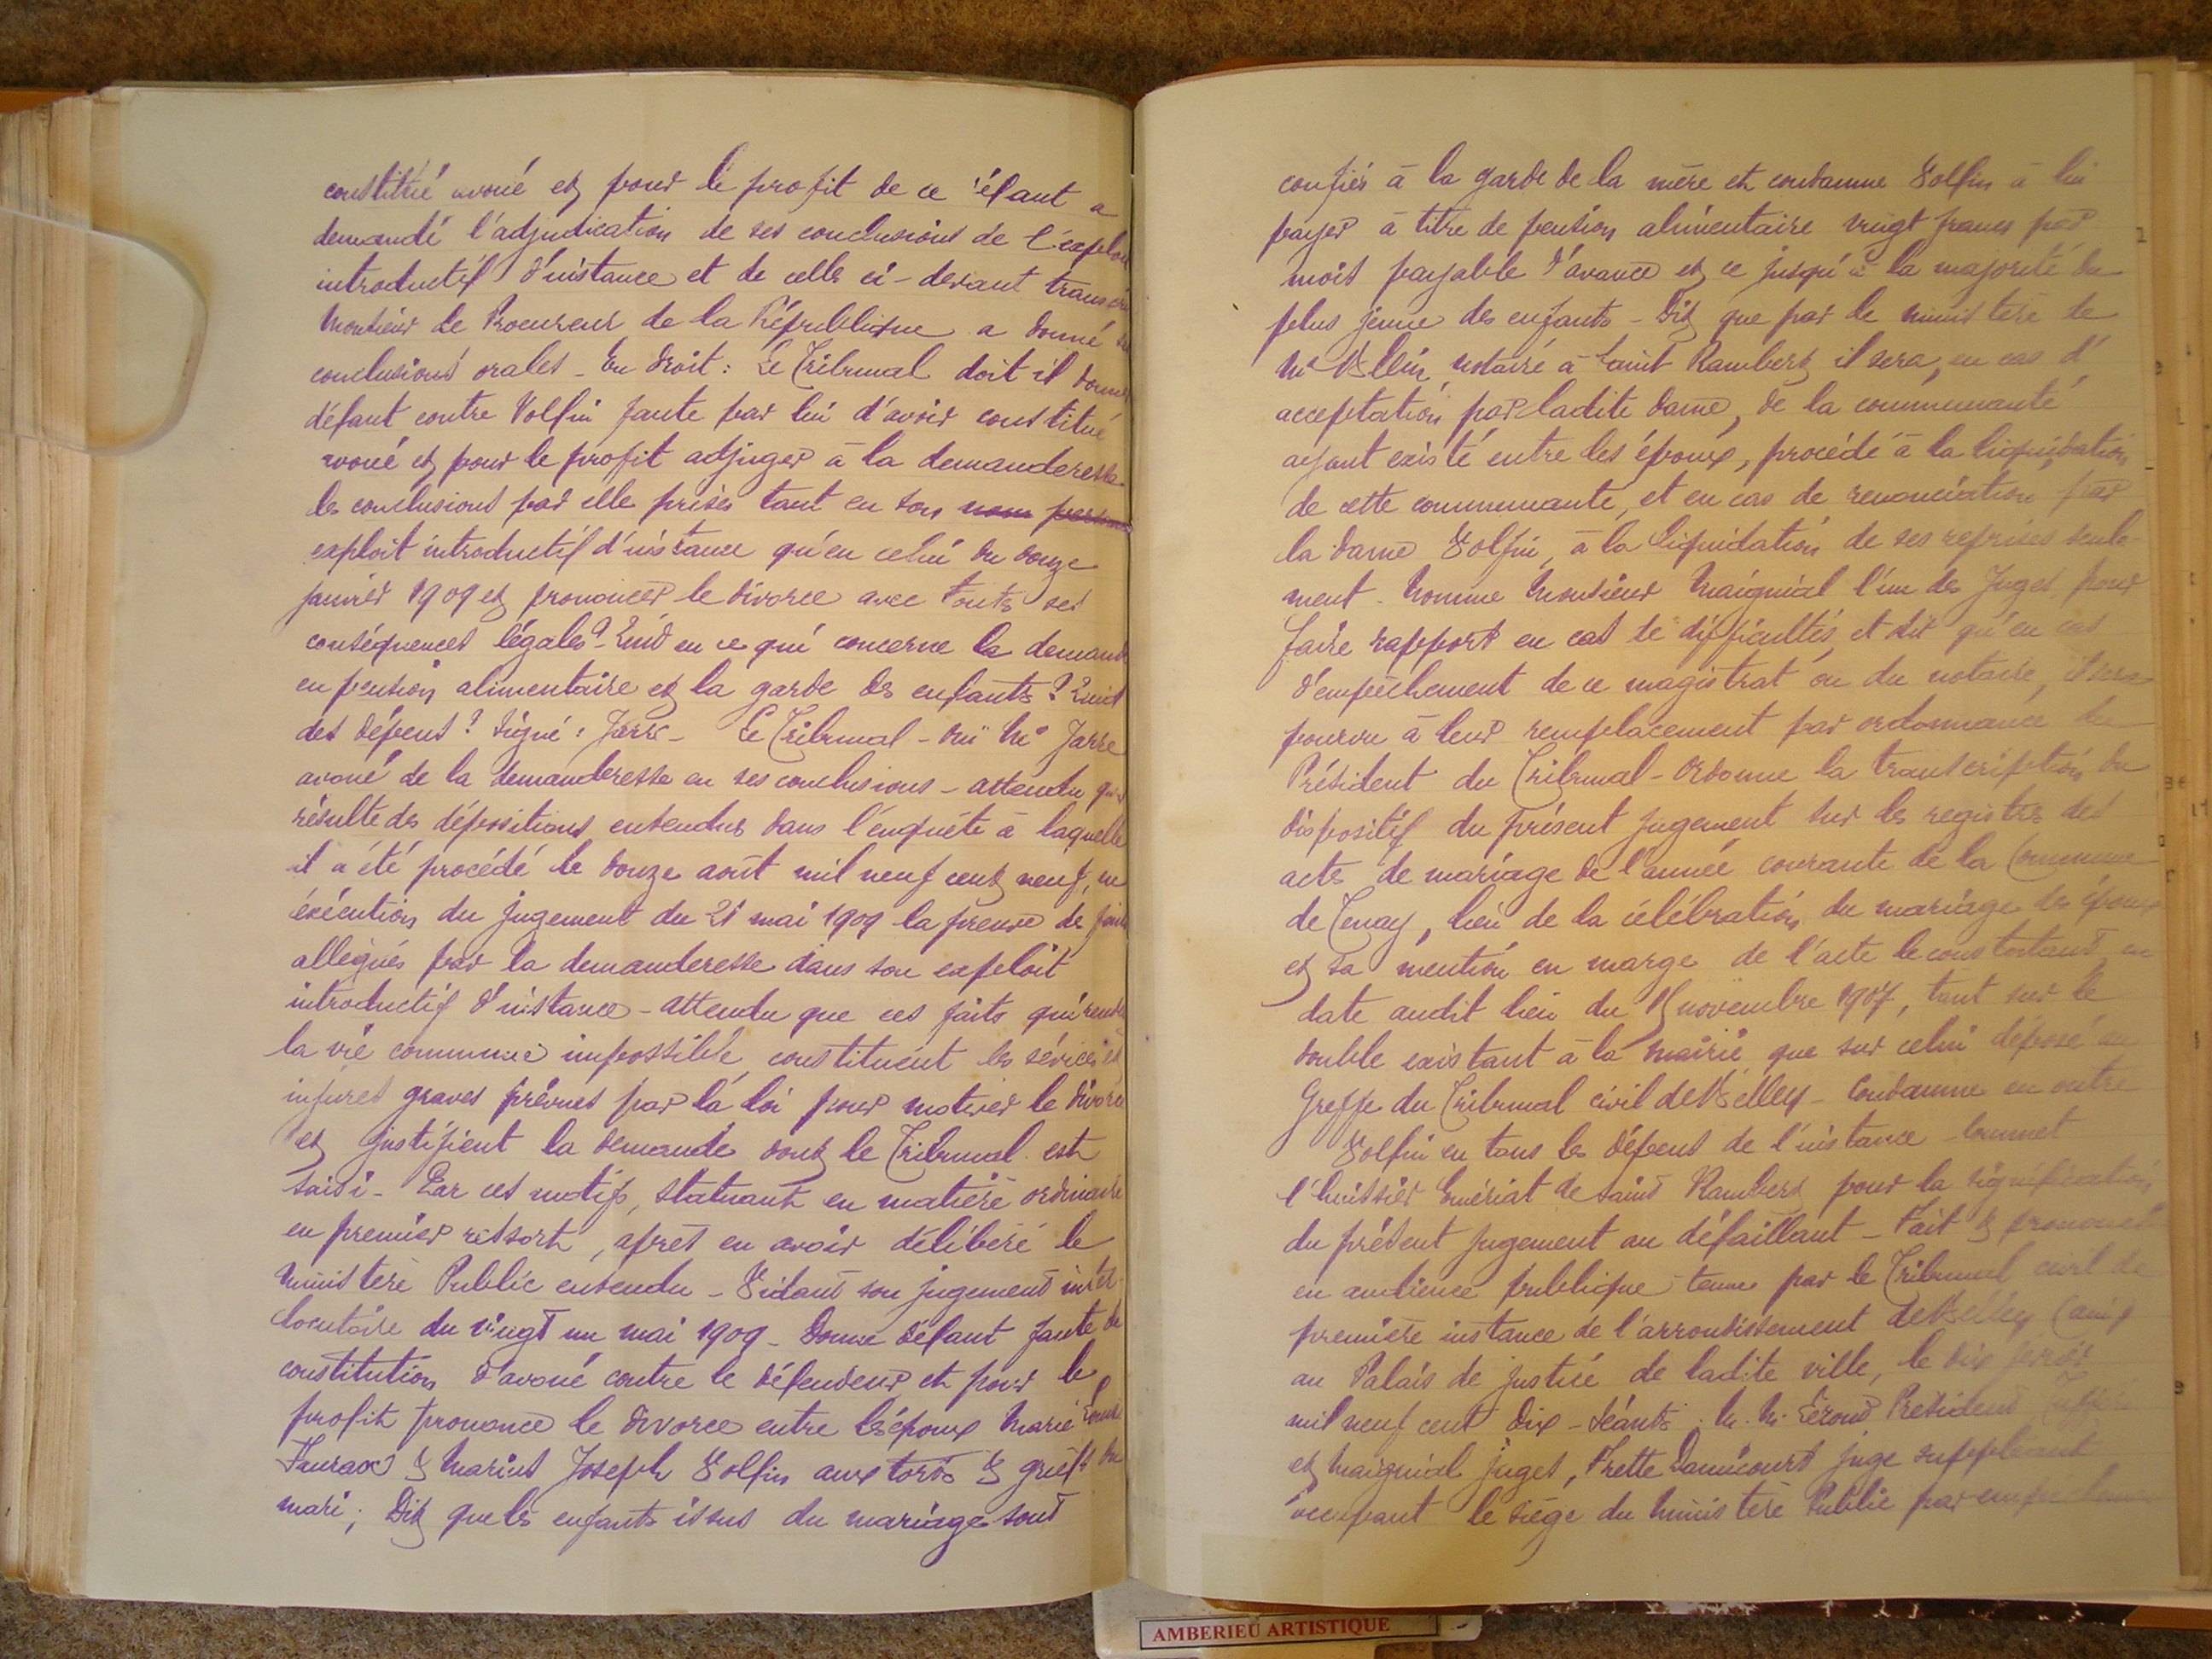 constitué avoué et pour le profit de ce défaut a
demandé l'adjudication de ses conclusions de l'exploit
introductif d'instance et de celle ci-devant
Monsieur le Procureur de la République a donné
conclusions orales - En droit : Le Tribunal doit il donner
défaut contre Volfin faute par lui d'avoir constitué
avoué et pour le profit adjuger à la demanderesse
les conclusions par elle prises tant en son nom
exploit introductif d'instance qu'en celui du douze
janvier 1909 et prononcer le divorce avec toutes ses
conséquences légales ? Quid en ce qui concerne la demande
en pension alimentaire et la garde des enfants ? Quid
des dépens ? Signé : Jarre - Le Tribunal - Ouï Me Jarre
avoué de la demanderesse en ses conclusions - attendu qu'il
résulte des dépositions entendues dans l'enquête à laquelle
il a été procédé le douze août mil neuf cent neuf, en
éxécution du jugement du 21 mai 1909 la preuve de faits
allégués par la demanderesse dans son exploit
introductif d'instance - attendu que ces faits qui rendent
la vie commune impossible, constituent les sévices et
injures graves prévues par la loi pour motiver le divorce
et justifient la demande dont le Tribunal est
saisi - Par ces motifs, statuant en matière ordinaire
en premier ressort, après en avoir délibéré le
Ministère Public entendu - Vidant son jugement inter-
locutoire du vingt un mai 1909 - Donne défaut faute de
constitution d'avoué contre le défendeur et pour le
profit prononce le divorce entre les époux Marie Louise
Fauraox & Marius Joseph Volfin aux torts & griefs du
mari ; Dit que les enfants issus du mariage sont
confiés à la garde de la mère et condamne Volfin à lui
payer à titre de pension alimentaire vingt francs par
mois payable d'avance et ce jusqu'à la majorité du
plus jeune des enfants - Dit que par le ministère de
Me Bellin, notaire à Saint Rambert il sera, en cas d'
acceptation par ladite dame, de la communauté
ayant existé entre les époux, procédé à la liquidation
de cette communauté, et en cas de renonciation par
la dame Volfin, à la liquidation de ses reprises seule-
ment - Nomme Monsieur Maignial l'un des Juges pour
faire rapport en cas de difficultés, et dit qu'en cas
d'empêchement de ce magistrat ou du notaire, il sera
pourvu à leur remplacement par ordonnance du
Président du Tribunal - Ordonne la transcription du
dispositif du présent jugement sur les registres des
actes de mariage de l'année courante de la Commune
de Tenay, lieu de la célébration du mariage des époux
et sa mention en marge de l'acte le constatant en
date audit lieu du novembre 1907, tant sur le
double existant à la mairie que sur celui déposé au
Greffe du Tribunal civil de Belley - Condamne en outre
Volfin en tous les dépens de l'instance - Commet
l'huissier Emériat de Saint Rambert pour la signification
du présent jugement au défaillant - Fait & prononcé
en audience publique tenue par le Tribunal civil de
première instance de l'arrondissement de Belley (ain)
au Palais de justice de ladite ville, le dix
mil neuf cent dix - Séants : M. M. Président
et Maignial juges, Frette Damicourt juge suppléant
occupant le siège du Ministère Public par
AMBERIEU ARTISTIQUE